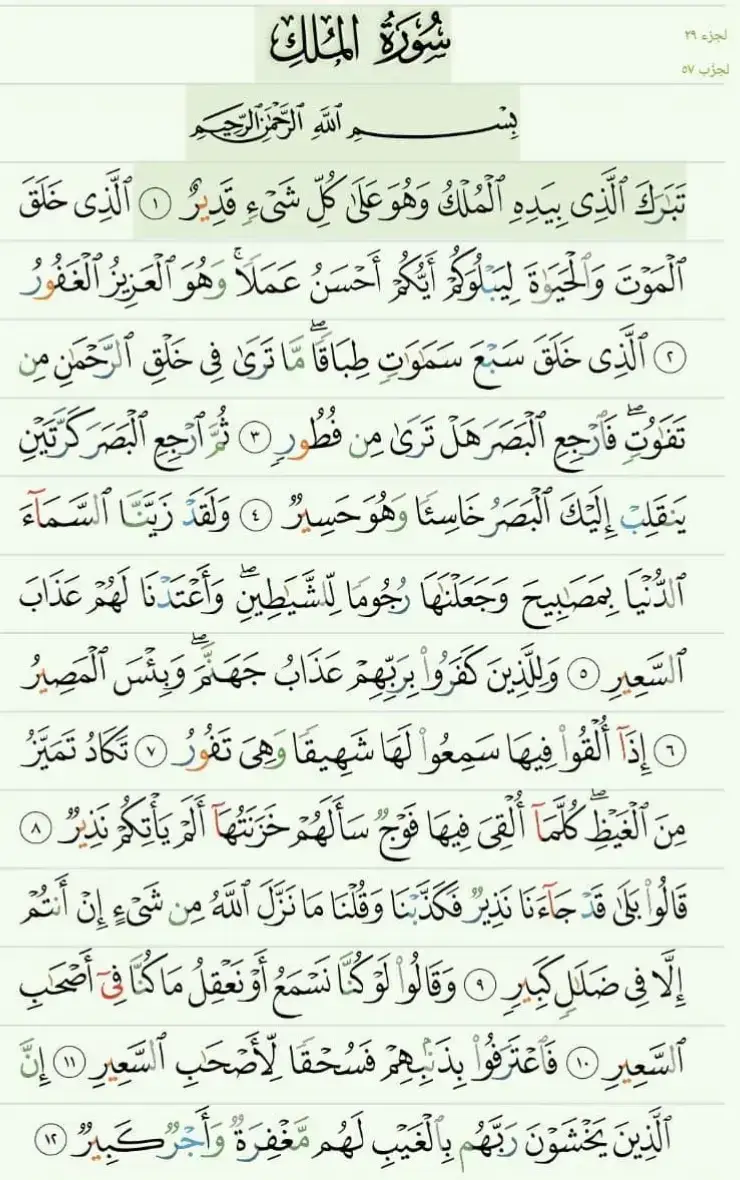 لجزء ٢٩
لحزب ٥٧
سُورَةُ المُلكِ
بِسْمِ اللَّهِ الرَّحْمَٰنِ الرَّحِيمِ
تَبَٰرَكَ ٱلَّذِى بِيَدِهِ ٱلْمُلْكُ وَهُوَ عَلَىٰ كُلِّ شَىْءٍ قَدِيرٌ ١ ٱلَّذِى خَلَقَ
ٱلْمَوْتَ وَٱلْحَيَوٰةَ لِيَبْلُوَكُمْ أَيُّكُمْ أَحْسَنُ عَمَلًا ۚ وَهُوَ ٱلْعَزِيزُ ٱلْغَفُورُ
٢ ٱلَّذِى خَلَقَ سَبْعَ سَمَٰوَٰتٍ طِبَاقًا ۖ مَّا تَرَىٰ فِى خَلْقِ ٱلرَّحْمَٰنِ مِن
تَفَٰوُتٍ ۖ فَٱرْجِعِ ٱلْبَصَرَ هَلْ تَرَىٰ مِن فُطُورٍ ٣ ثُمَّ ٱرْجِعِ ٱلْبَصَرَ كَرَّتَيْنِ
يَنقَلِبْ إِلَيْكَ ٱلْبَصَرُ خَاسِئًا وَهُوَ حَسِيرٌ ٤ وَلَقَدْ زَيَّنَّا ٱلسَّمَآءَ
ٱلدُّنْيَا بِمَصَٰبِيحَ وَجَعَلْنَٰهَا رُجُومًا لِّلشَّيَٰطِينِ ۖ وَأَعْتَدْنَا لَهُمْ عَذَابَ
ٱلسَّعِيرِ ٥ وَلِلَّذِينَ كَفَرُوا۟ بِرَبِّهِمْ عَذَابُ جَهَنَّمَ ۖ وَبِئْسَ ٱلْمَصِيرُ
٦ إِذَآ أُلْقُوا۟ فِيهَا سَمِعُوا۟ لَهَا شَهِيقًا وَهِىَ تَفُورُ ٧ تَكَادُ تَمَيَّزُ
مِنَ ٱلْغَيْظِ ۖ كُلَّمَآ أُلْقِىَ فِيهَا فَوْجٌ سَأَلَهُمْ خَزَنَتُهَآ أَلَمْ يَأْتِكُمْ نَذِيرٌ ٨
قَالُوا۟ بَلَىٰ قَدْ جَآءَنَا نَذِيرٌ فَكَذَّبْنَا وَقُلْنَا مَا نَزَّلَ ٱللَّهُ مِن شَىْءٍ إِنْ أَنتُمْ
إِلَّا فِى ضَلَٰلٍ كَبِيرٍ ٩ وَقَالُوا۟ لَوْ كُنَّا نَسْمَعُ أَوْ نَعْقِلُ مَا كُنَّا فِىٓ أَصْحَٰبِ
ٱلسَّعِيرِ ١٠ فَٱعْتَرَفُوا۟ بِذَنۢبِهِمْ فَسُحْقًا لِّأَصْحَٰبِ ٱلسَّعِيرِ ١١ إِنَّ
ٱلَّذِينَ يَخْشَوْنَ رَبَّهُم بِٱلْغَيْبِ لَهُم مَّغْفِرَةٌ وَأَجْرٌ كَبِيرٌ ١٢